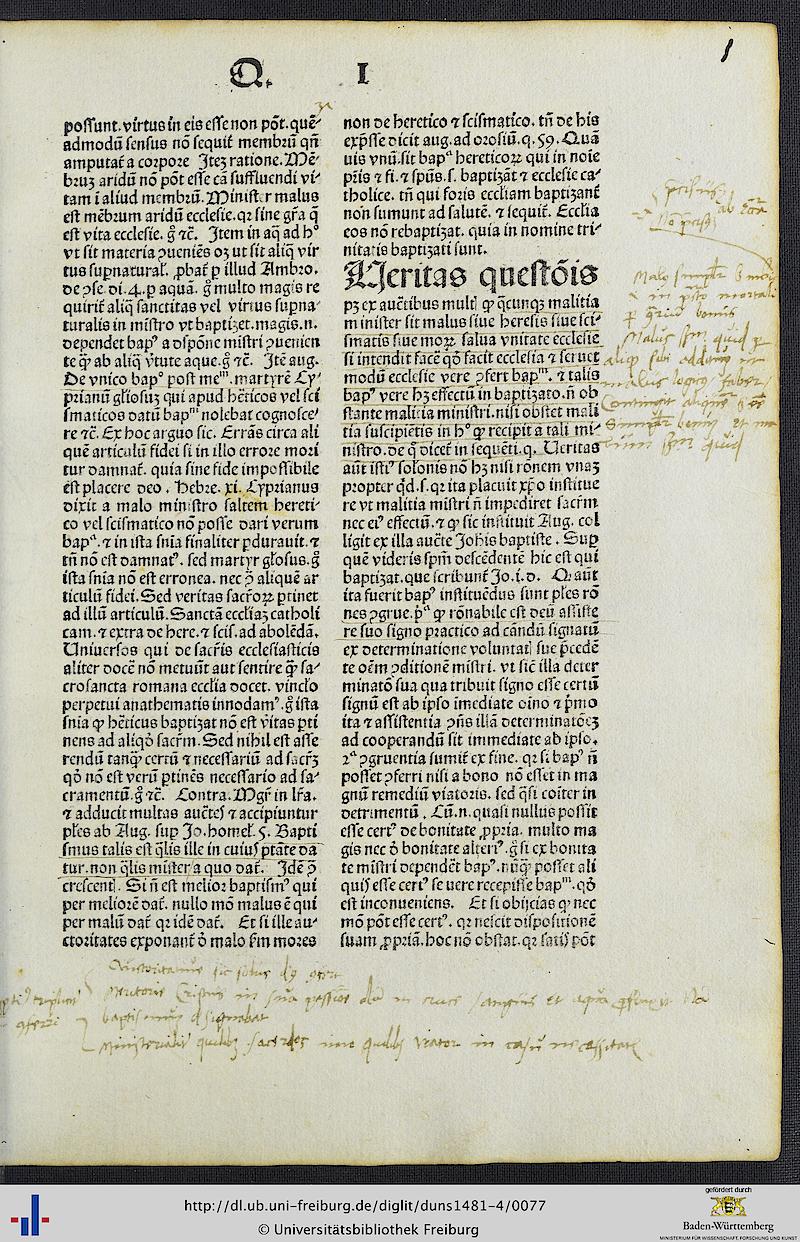 Q. I
1
possunt. virtus in eis esse non põt. quẽ-
admodũ sensus nõ sequit̃ membrũ qñ
amputat̃ a corpore Itez ratione. Mẽ-
bruz aridũ nõ põt esse cã suffluendi vi-
tam ĩ aliud membrũ. Minister malus
est mẽbrum aridũ ecclesie. qr sine gr̃a q̃
est vita ecclesie. g̃ ⁊c̃. Item in aq̃ ad hº
vt sit materia ꝯueniẽs oꝫ ut sit aliq̃ vir
tus sup̃natural̃. ꝓbat̃ ꝑ illud Ambro.
de ꝯse. di. 4. ꝑ aquã. g̃ multo magis re
quirit̃ aliq̃ sanctitas vel virtus sup̃na-
turalis in mĩstro vt baptizet. magis .n.
dependet bapꝰ a dispõne mĩstri ꝯuenien
te q̃ꝫ ab aliq̃ ṽtute aque. g̃ ⁊c̃. Itẽ aug.
De vnico bapº post meᵐ. martyrẽ Cy-
prianũ gl̃iosuꝫ qui apud hẽticos vel sci
smaticos datũ bapᵐ nolebat cognosce-
re ⁊c̃. Ex hoc arguo sic. Errãs circa ali
quẽ articulũ fidei si in illo errore mori
tur damnat̃. quia sine fide impossibile
est placere deo. Hebre. xi. Cyprianus
dixit a malo ministro saltem hereti-
co vel scismatico nõ posse dari verum
bapᵃ. ⁊ in ista sñia finaliter ꝑdurauit. ⁊
tñ nõ est damnatꝰ. sed martyr gl̃osus. g̃
ista sñia nõ est erronea. nec ꝯ̃ aliquẽ ar
ticulũ fidei. Sed veritas sacr̃oꝝ ꝑtinet
ad illũ articulũ. Sanctã eccl̃iaꝫ catholi
cam. ⁊ extra de here. ⁊ scis. ad abolẽdã.
Uniuersos qui de sacr̃is ecclesiasticis
aliter docẽ nõ metuũt aut sentire q̃ꝫ sa-
crosancta romana eccl̃ia docet. vincl̃o
perpetui anathematis innodamꝰ. g̃ ista
sñia ꝙ hẽticus baptizat nõ est ṽitas ꝑti
nens ad aliqõ sacr̃m. Sed nihil est asse
rendũ tanq̃ꝫ certũ ⁊ necessariũ ad sacr̃ꝫ
qõ nõ est verũ ꝑtinẽs necessario ad sa-
cramentũ. g̃ ⁊c̃. Contra. Mgr̃ in lr̃a.
⁊ adducit multas auc̃tes ⁊ accipiuntur
ples ab Aug. sup̃ Jo. homel̃. 5. Bapti
smus talis est q̃lis ille in cuiꝰ ptãte da
tur. non q̃lis mĩster a quo dat̃. Idẽ ꝯ̃
crescent. Si ñ est melior baptismꝰ qui
per meliorẽ dat̃. nullo mõ malus ẽ qui
per malũ dat̃ qr idẽ dat̃. Et si ille au-
ctoritates exponant̃ õ malo km̃ mores
non de heretico ⁊ scismatico. tñ de his
exp̃sse dicit aug. ad orosiũ. q. 59. Quã
uis vnũ. sit bapᵃ hereticoꝝ qui in noĩe
p̃ris ⁊ fi. ⁊ sp̃us. s. baptizãt ⁊ ecclesie ca-
tholice. tñ qui foris eccliam baptizant̃
non sumunt ad salutẽ. ⁊ sequit̃. Ecclĩa
eos nõ rebaptizat. quia in nomine tri-
nitatis baptizati sunt.
Ueritas questõis
pꝫ ex auc̃tibus multꝭ ꝙ q̃cunqꝫ malitia
minister sit malus siue heresis siue sci-
smatis siue moꝝ salua vnitate ecclesie
si intendit facẽ qõ facit ecclesia ⁊ seruet
modũ ecclesie vere ꝯfert bapᵐ. ⁊ talis
bapꝰ vere hꝫ effectũ in baptizato. ñ ob
stante malitia ministri. nisi obstet mali
tia suscipiẽtis in hº ꝙ recipit a tali mi-
nistro. de q̃ dicet̃ in sequẽti. q. Ueritas
aũt istiꝰ solonis nõ hꝫ nisi rõnem vnaꝫ
propter q̃d. s. qr ita placuit xp̃o institue
re vt malitia mĩstri ñ impediret sacr̃m
nec eiꝰ effectũ. ⁊ ꝙ sic instituit Aug. col
ligit ex illa auc̃te Joh̃is baptiste. Sup̃
quẽ videris sp̃m descẽdentẽ hic est qui
baptizat. que scribunt̃ Jo. i. d. Q aũt
ita fuerit bapꝰ instituẽdus sunt ples rõ
nes ꝯgrue. p̃ᵃ ꝙ rõnabile est deũ assiste
re suo signo practico ad cãndũ signatũ
ex determinatione voluntatꝭ sue p̃cedẽ
te oẽm ꝯditionẽ mĩstri. vt sic̃ illa deter
minatõ sua qua tribuit signo esse certũ
signũ est ab ipso ĩmediate oĩno ⁊ p̃mo
ita ⁊ assistentia ꝯñs illã determinatõeꝫ
ad cooperandũ sit immediate ab ipso.
2ᵃ ꝯgruentia sumit̃ ex fine. qr si bapꝰ ñ
posset ꝯferri nisi a bono nõ esset in ma
gnũ remediũ viatoris. sed q̃si coĩter in
detrimentũ. Cũ .n. quasi nullus possit
esse certꝰ de bonitate ꝓpria. multo ma
gis nec õ bonitate alteriꝰ. g̃ si ex bonita
te mĩstri dependẽt bapꝰ. nũq̃ꝫ posset ali
quis esse certꝰ se vere recepisse bapᵐ. qõ
est inconueniens. Et si obijcias ꝙ nec
mõ põt esse certꝰ. qr nescit dispositionẽ
suam ꝓpriã. hoc nõ obstat. qr satis põt
http://dl.ub.uni-freiburg.de/diglit/duns1481-4/0077
© Universitätsbibliothek Freiburg
gefördert durch
Baden-Württemberg
MINISTERIUM FÜR WISSENSCHAFT, FORSCHUNG UND KUNST